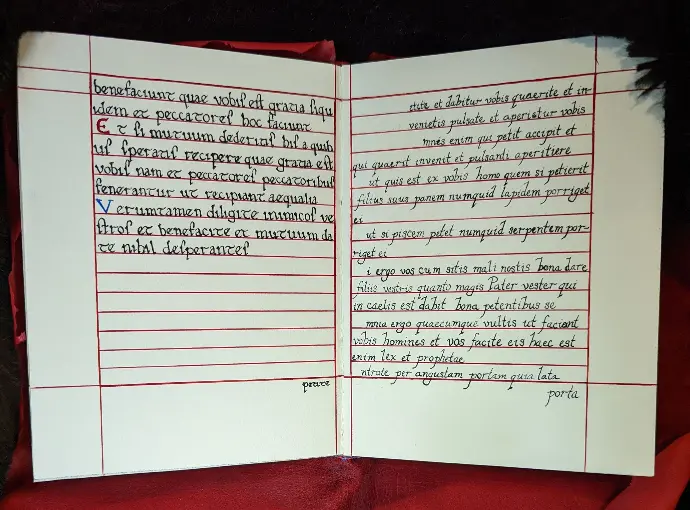 benefaciunt quae vobis est gratia siqu
idem et peccatores hoc faciunt
Et si mutuum dederitis his a quib
us speratis recipere quae gratia est
vobis nam et peccatores peccatoribus
fenerantur ut recipiant aequalia
Verumtamen diligite inimicos ve
stros et benefacite et mutuum da
te nihil desperantes
petite
stite et dabitur vobis quaerite et in-
venietis pulsate et aperietur vobis
mnes enim qui petit accipit et
qui quaerit invenit et pulsanti aperitiere
ut quis est ex vobis homo quem si petierit
filius suus panem numquid lapidem porriget
ei
ut si piscem petet numquid serpentem por-
riget ei
i ergo vos cum sitis mali nostis bona dare
filiis vestris quanto magis Pater vester qui
in caelis est dabit bona petentibus se
mnia ergo quaecumque vultis ut faciant
vobis homines et vos facite eis haec est
enim lex et prophetae
ntrate per angustam portam quia lata
porta